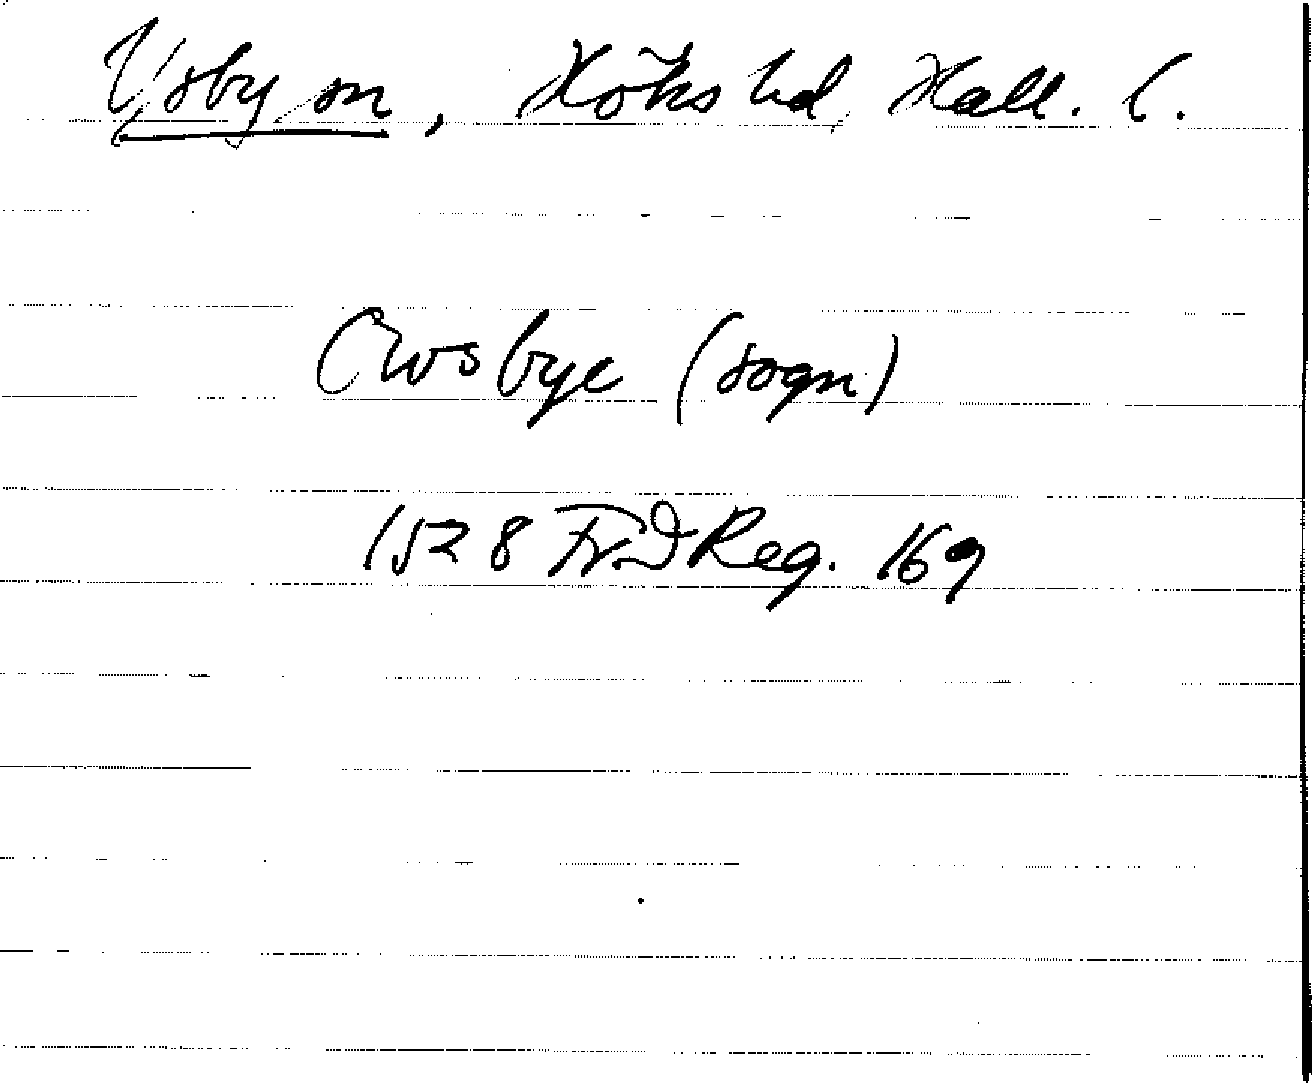 Ysby sn, Höks hd, Hall. l.
Owsbye (sogn)
1528 FrIReg. 169